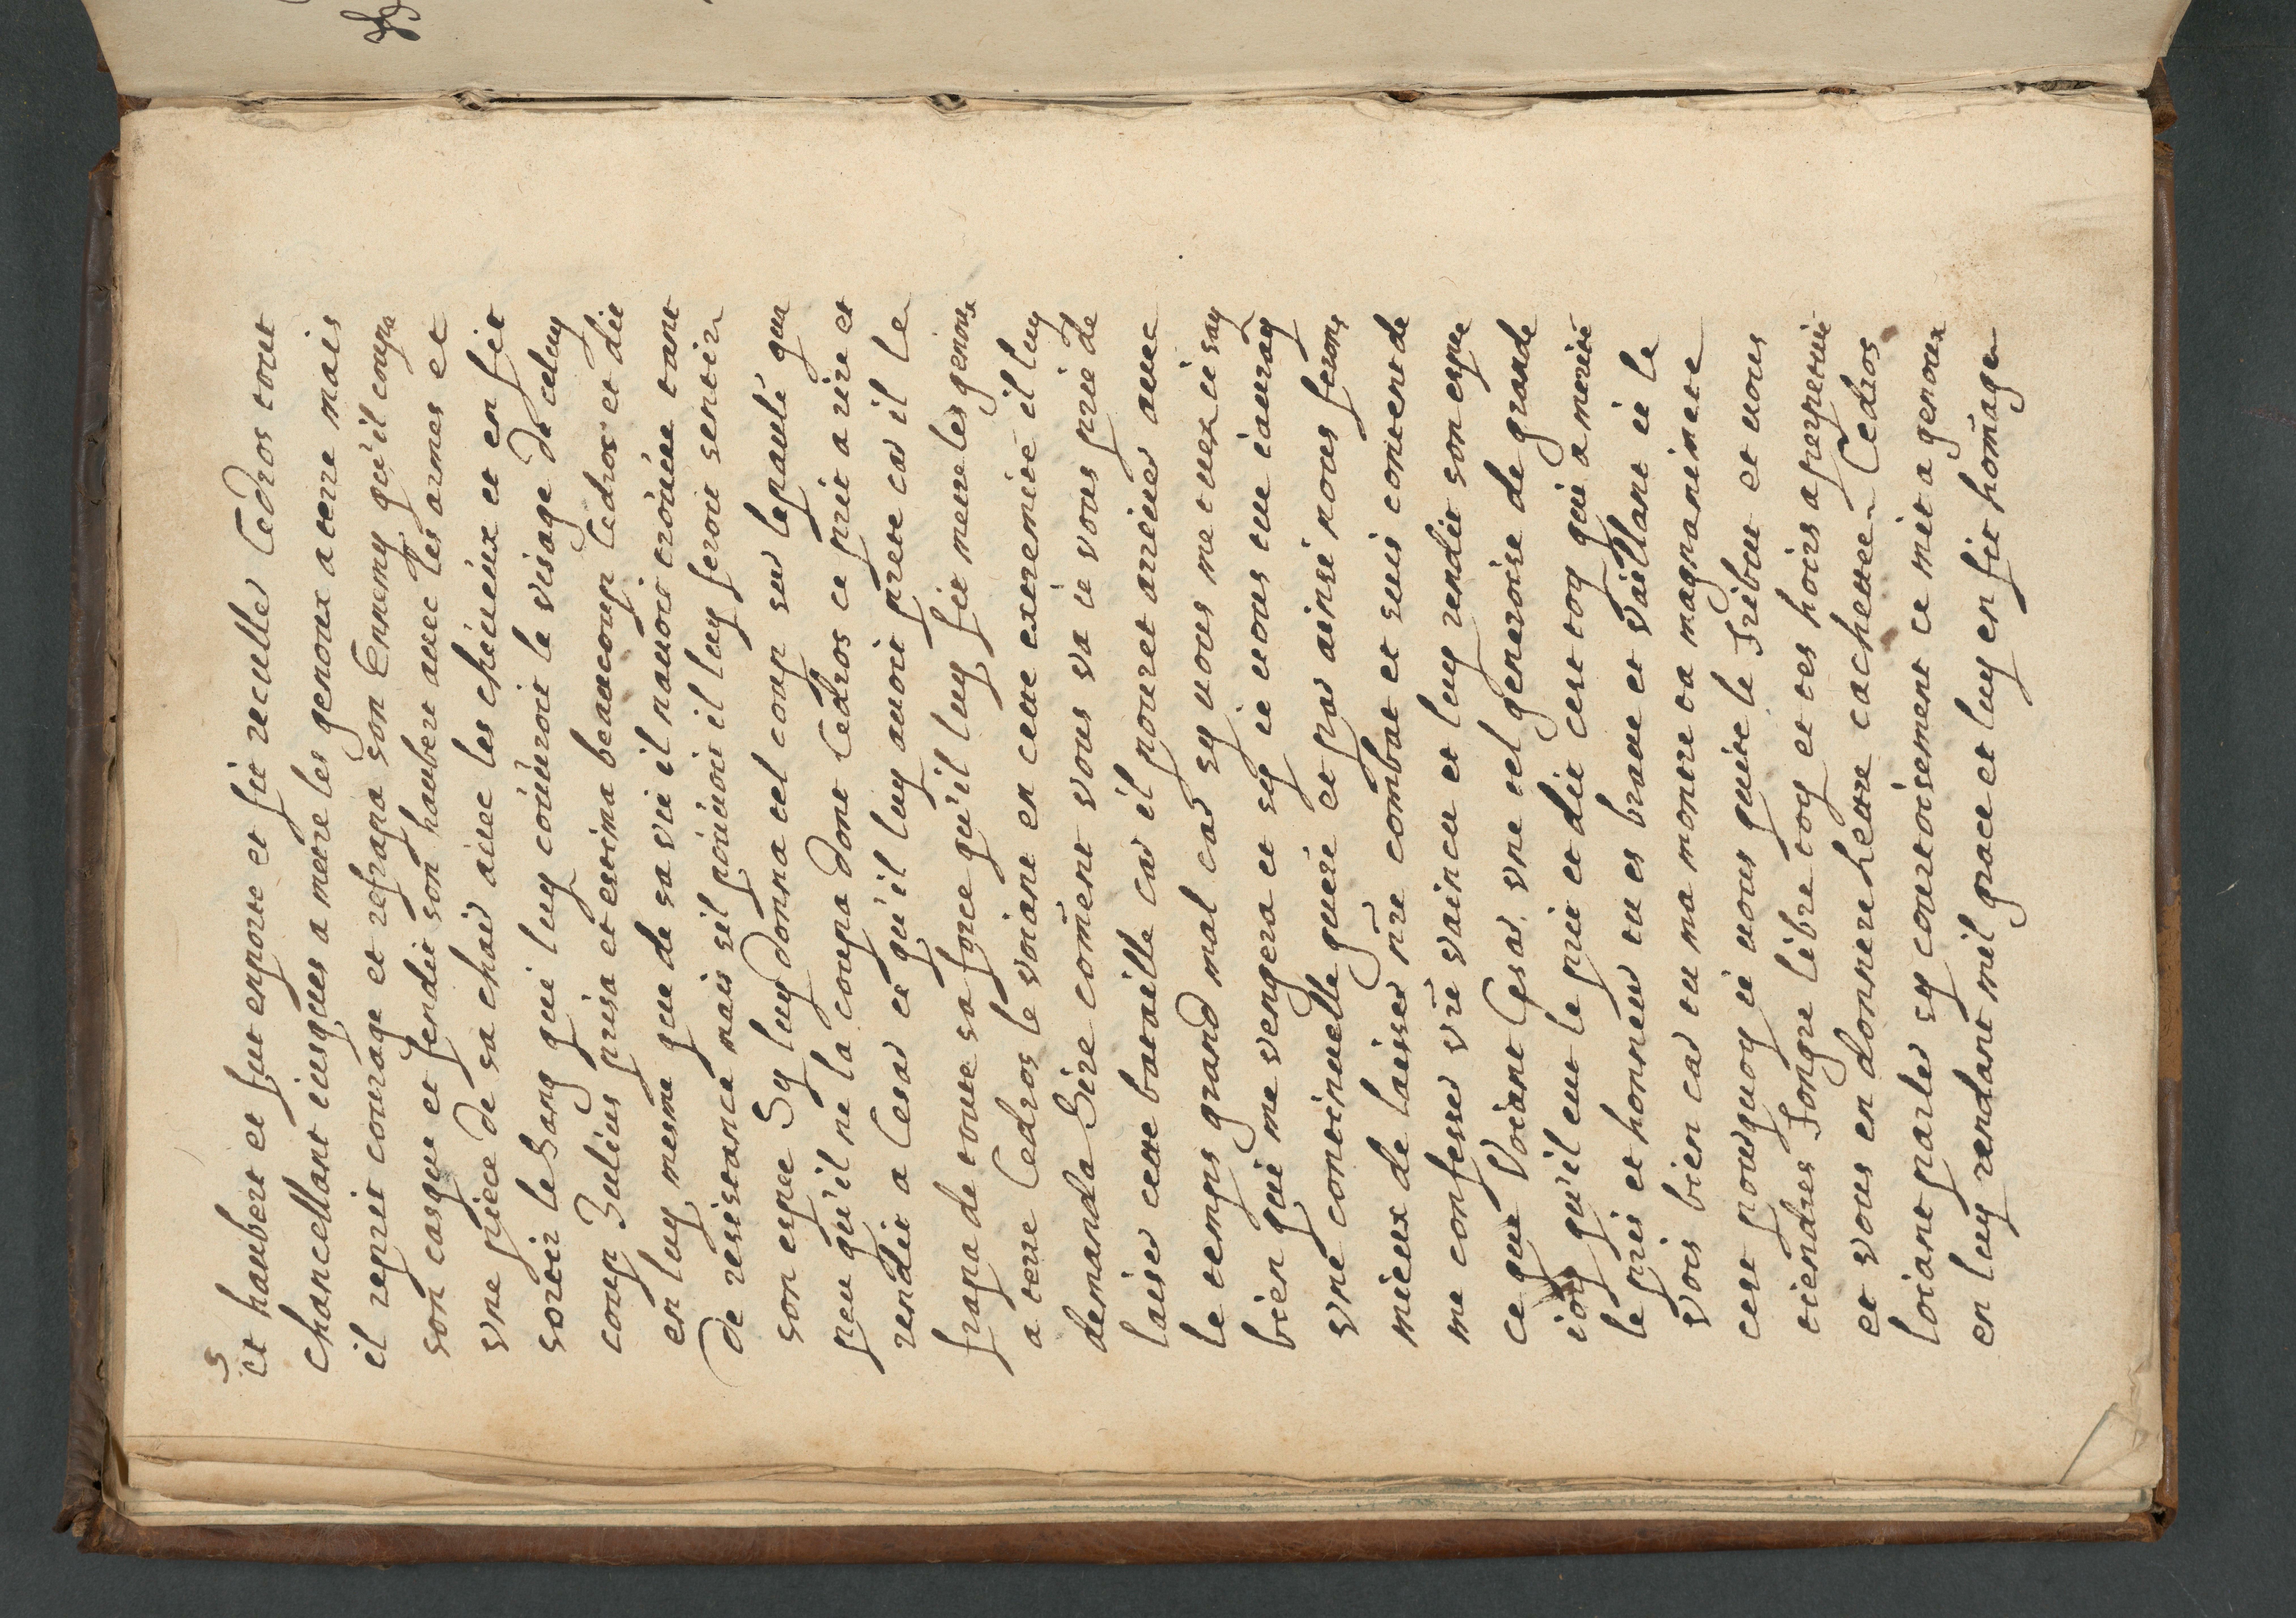 5
et haubert et fut enporté et fit reculler Cedros tout
chancellant iusques a mettre les genoux a terre mais
il reprit courage et refrapa son Ennemy qu'il coupa
son casque et fendit son haubert auec les armes et
vne piece de sa chair auec les cheueux et en fit
sortir le Sang qui luy couuroit le visage de celuy
coup Julius prisa et estima beaucoup Cedros et dit
en luy mesme que de sa vie il nauoit trouuée tant
de resistance mais sil pouuoit il luy feroit sentir
son espee Sy luy donna tel coup sur lepaule que
peu qu'il ne la coupa dont Cedros ce prit a rire et
rendit a Cesar ce qu'il luy auoit preté car il le
frapa de toute sa force qu'il luy fit mettre les genoux
a terre Cedros le voiant en cette extremité il luy
demanda Sire com̃ent vous va ie vous prie de
laiser cette bataille car il pouret ariuer auec
le temps grand mal car sy uous me tuex ie say
bien qui me vengera et sy ie uous tue iauray
vne continuelle guere et par ainsi nous ferons
mieux de laisser nr̃e combat et suis content de
me confesser vr̃e vaincu et luy rendit son espee
ce que Voiant Cesar vne tel generoise de grande
ioy qu'il eut le prit et dit cest toy qui a merité
le pris et honneur tu es braue et vaillant ie le
vois bien car tu ma montré ta magnanimeté
cest pourquoy ie uous quitte le Tribut et uous
tiendres Tongre libre toy et tes hoirs a perpetuité
et vous en donnere lettre cachettee Cedros
loiant parler sy courtoisement ce mit a genoux
en luy rendant mil grace et luy en fit hom̃age